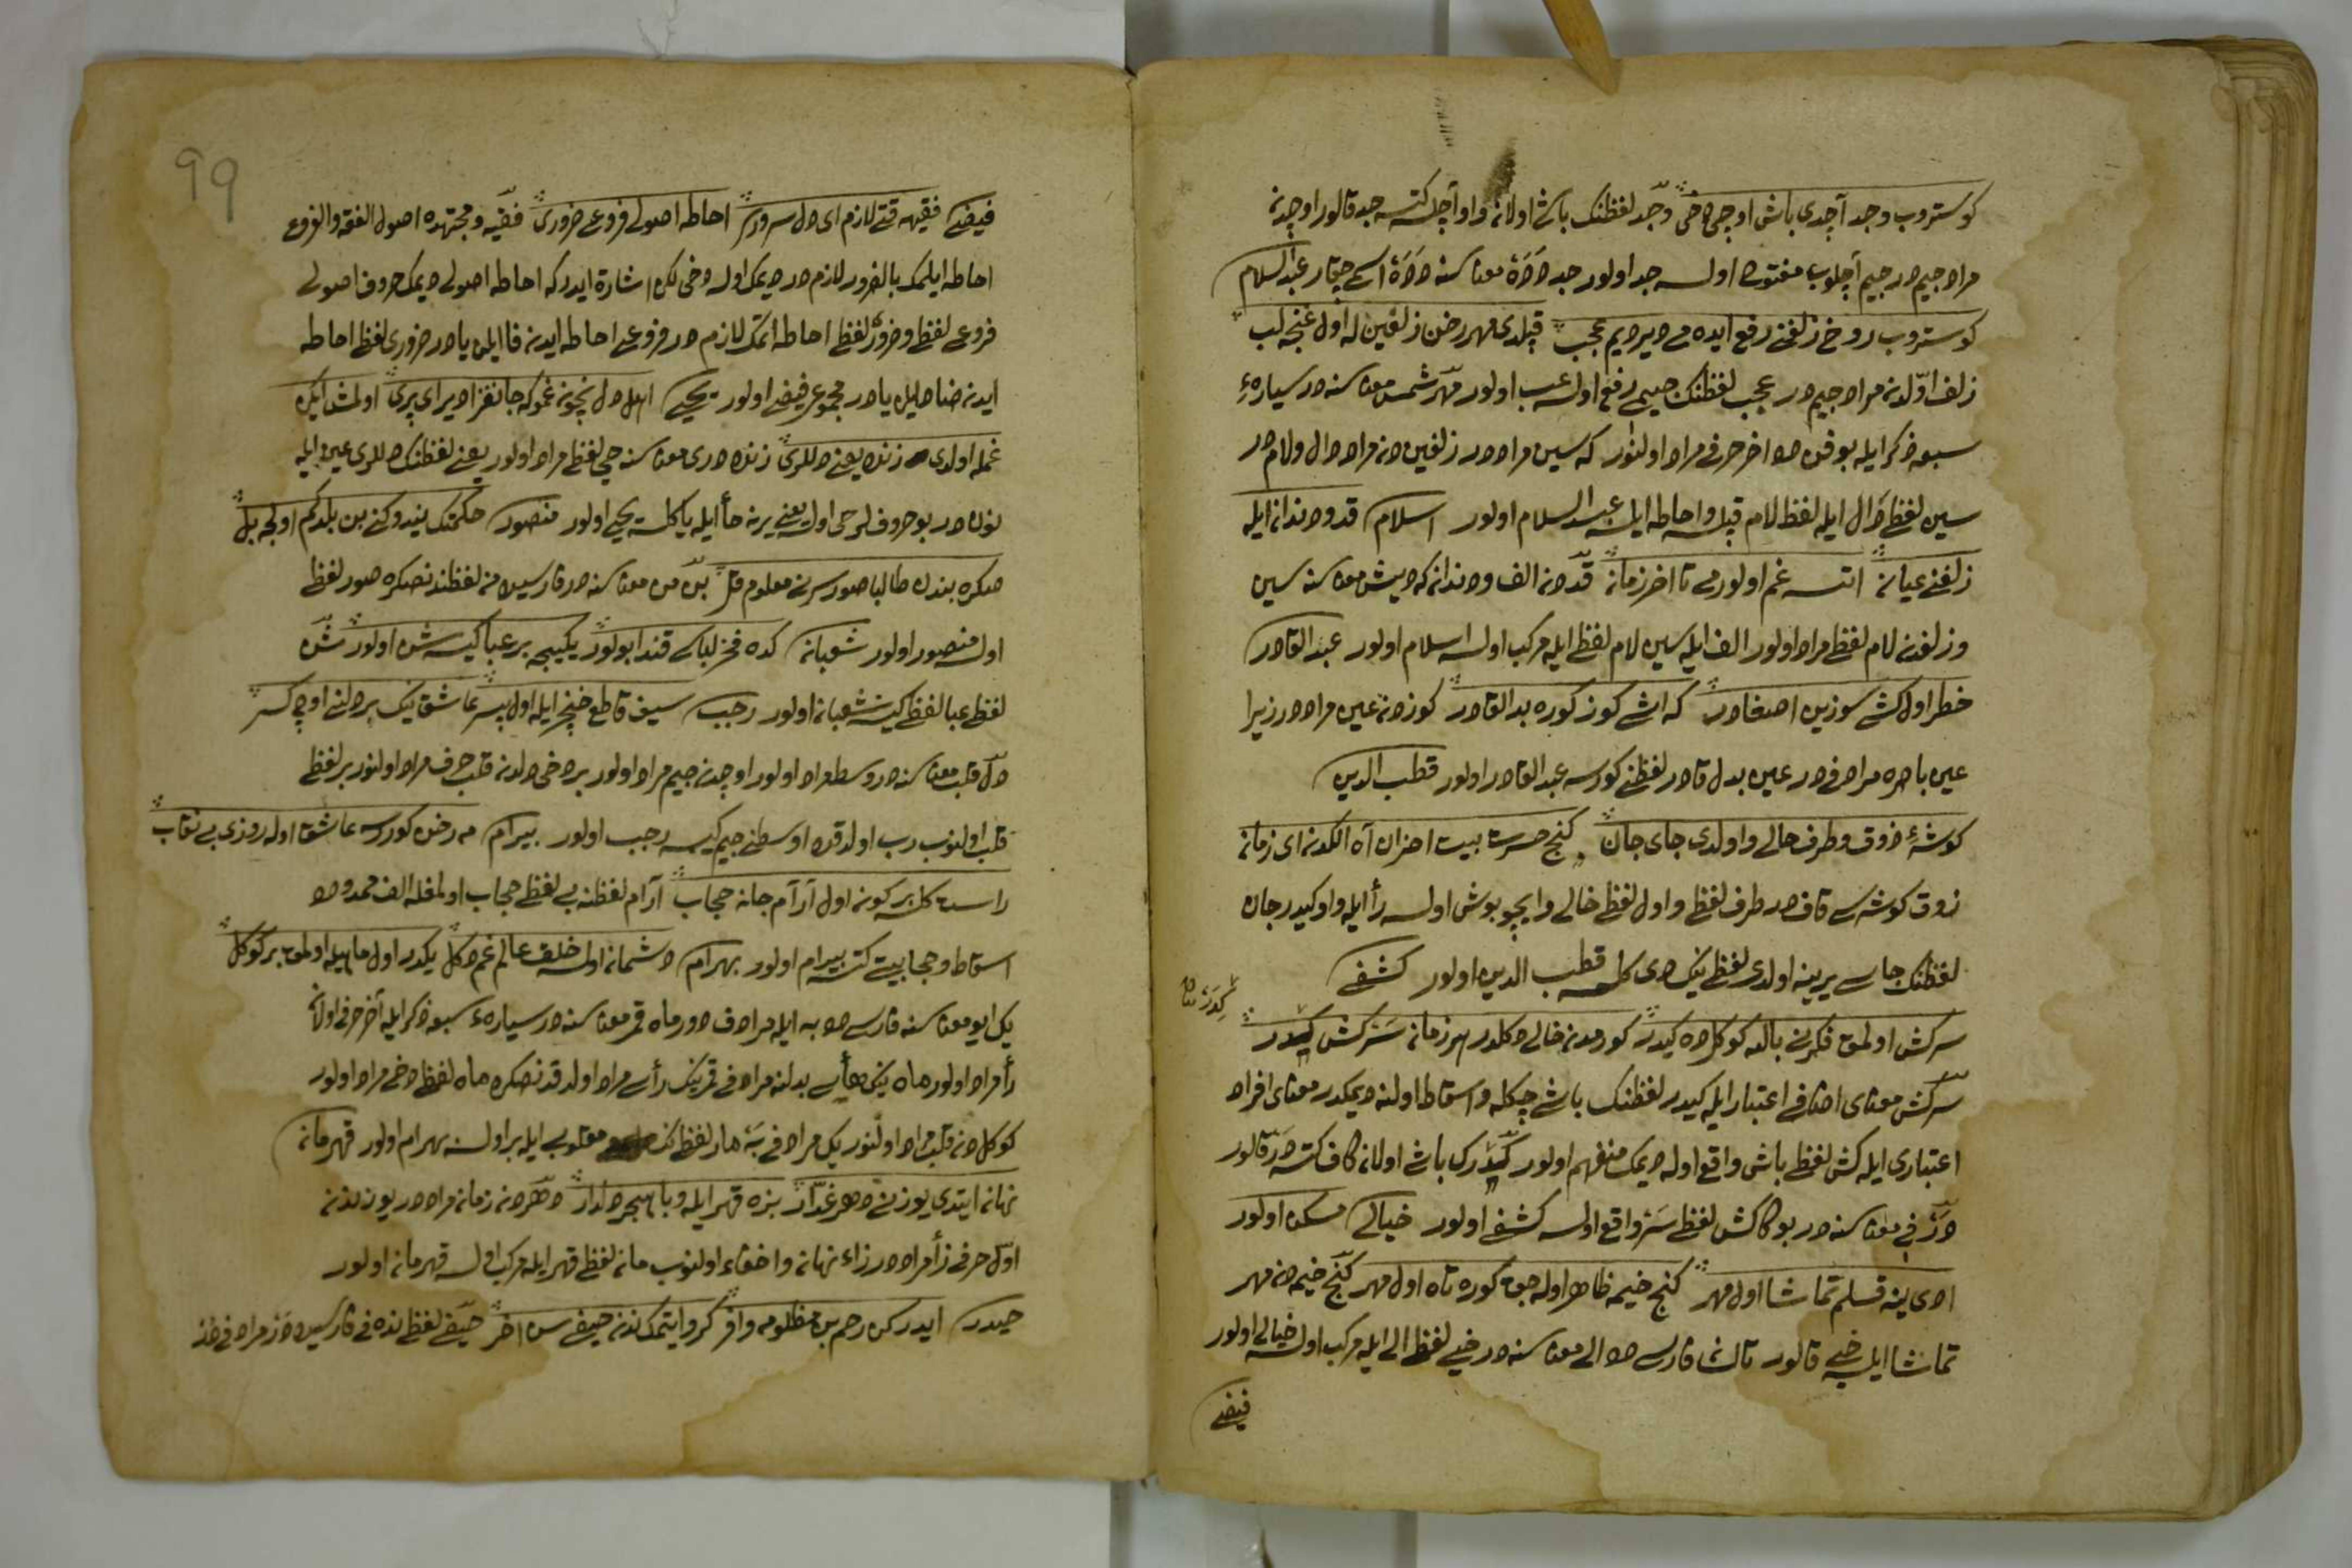 كوستروب وجد آچدى باش اوجى دخى وجد لفظنك باشى اولان واو آچلسه كتسه جد قالور اوچدن
مراد جيم در جيم آچلوب مفتوح اولسه جد اولور جد دَدَهٔ معناسنه دَدَهٔ اسمى چيقار عبد السلام
كوستروب روخ زلفنى رفع ايده مى دير ديم عجب قيلدى مهر رخن زلفين له اول غنچه لب
زلف اولدن مراد جيم در عجب لفظنك جيمى رفع اولسه عب اولور مهر شمس معناسنه در سيارهٔ
سبعه ذكر ايله بو فن ده اخر حرفى مراد اولنور كه سين مراد در زلفين دن مراد دال و لام در
سين لفظ دال ايله لفظ لام قيل و احاطه ايلسه عبد السلام اولور اسلام قد و دندان ايله
زلفنى عيان اتسه غم اولورمى تا اخر زمان قد دن الف و دندان كه ديش معناسنه سين
و زلفدن لام لفظى مراد اولور الف ايله سين لام لفظى ايله مركب اولسه اسلام اولور عبد القادر
خطر اول كشى سوزين اصغادر كه اشى كوز كوره بد القادر كوزدن عين مراد در زيرا
عين باصره مرادفى در عين بدل قادر لفظنى كورسه عبد القادر اولور قطب الدين
كوشهٔ ذوق و طرف خالى و اولدى جاى جان كنج حسرت بيت احزان آه الكدن اى زمان
ذوق كوشه سى قاف در طرف لفظى و اول لفظى خالى و ايچو بوش اولسه رأ ايله واو كيدر جان
لفظنك جاسى يرينه اولدى لفظى ينك دى كلسه قطب الدين اولور كشفى
سركش اولمق فكرنى بالله كوكلده كيدر كوردمدن خالى دكلدر هر زمان سركش كيدر
سركش معناى اضافى اعتبار ايله كيدر لفظنك باشى چكله و اسقاط اولنه ديمكدر معناى افراد
اعتبارى ايله كش لفظى باش واقع اوله ديمك منفهم اولور كيدرك باشى اولان كاف كتسه در قالور
در فى معناسنه در بو كا كش لفظى سر واقع اولسه كشفى اولور خيالى مسكن اولور
ادى ينه قسلم تماشا اول مهر كنج خيمه ظاهر اوله جق كوره تاه اول مهر كنج خيمه دن مهر
تماشا ايلسه خيى قالور تاك فارسى ده الى معناسنه در خيى لفظى الى ايله مركب اولسه خيالى اولور
فيضى
فيضى فقيهه قتى لازم اى دل سرورى احاطه اصولى فروعى ضرورى فقيه و مجتهده اصول الفقه و الفروع
احاطه ايلمك بالضرور لازم در ديمك اوله دخى لكن اشارة ايدر كه احاطه اصولى ديمك حروف اصولى
فروعى لفظى و ضرورى لفظى احاطه اتمك لازم در فروعى احاطه ايدن فا ايلن يا در ضرورى لفظى احاطه
ايدن ضاد ايلن يا در مجموعى فيضى اولور يحيى اهل دل نچون غموكه جانفزا دير اى پرى اولمش ايكن
غمله اولدى زنده يعنى دللرى زنده درى معناسنه حى لفظى مراد اولور يعنى لفظنك دللرى عين ايله
نون در بو حروف لر حى اول يعنى يرنه حأ ايله يا كلسه يحيى اولور منصور حكمتك پندوكنى بن بلدكم اولجه بل
صكره بندن طالبا صور سرنى معلوم قل بن من معناسنه در فارسيده من لفظندنصكره صور لفظى
اولسه منصور اولور شعبان كده فخر لباسى قندا بولور يكيجه بر عبا كيسه شن اولور شن
لفظى عبا لفظى كيسه شعبان اولور رجب سيف قاطع خنجر ايله اول پسر عاشقينك بر دلنى اوچ كسر
دل قلب معناسنه در وسط مراد اولور اوچدن جيم مراد اولور بر دخى دلدن قلب حرف مراد اولنور بر لفظى
قلب اولنوب رب اولدقده اوسطنى جيم كسه رجب اولور بيرام مه رخن كورسه عاشق اوله روزى بى نقاب
راست كلسه بر كون اول آرام جانه حجاب آرام لفظنه بى لفظى حجاب اولمغله الف ممدوده
اسقاط و حجابيت كتسه بيرام اولور بهرام دشمان اولسه خلق عالم غم دكل يكدر اول ماهيله اولمق بر كوكل
يك ايو معناسنه فارسى ده به ايله مرادف در ماه قمر معناسنه در سيارهٔ سبعه ذكر ايله آخر حرفى اولان
رأ مراد اولور ماه ينك هأ سى بدلنه مرادفى قمرينك رأ سى مراد اولدقدنصكره ماه لفظى دخى مراد اولور
كوكل دن قلب مراد اولنور يك مرادفى به مار لفظ نك مقلوبى ايله بر اولسه بهرام اولور قهرمان
نهان ايتدى يوزينى دهر غدار بزه قهر ايله و با هجر دلدار دهردن زمان مراد در يوزندن
اول حرفى زأ مراد در زاء نهان و اخفاء اولنوب مان لفظى قهر ايله مركب اولسه قهرمان اولور
حيدر ايدر كن رحم بن مظلومه وافر كروايتمكدن حيفى سن اخر حيفى لفظى نده فى فارسيده در مرادفى در